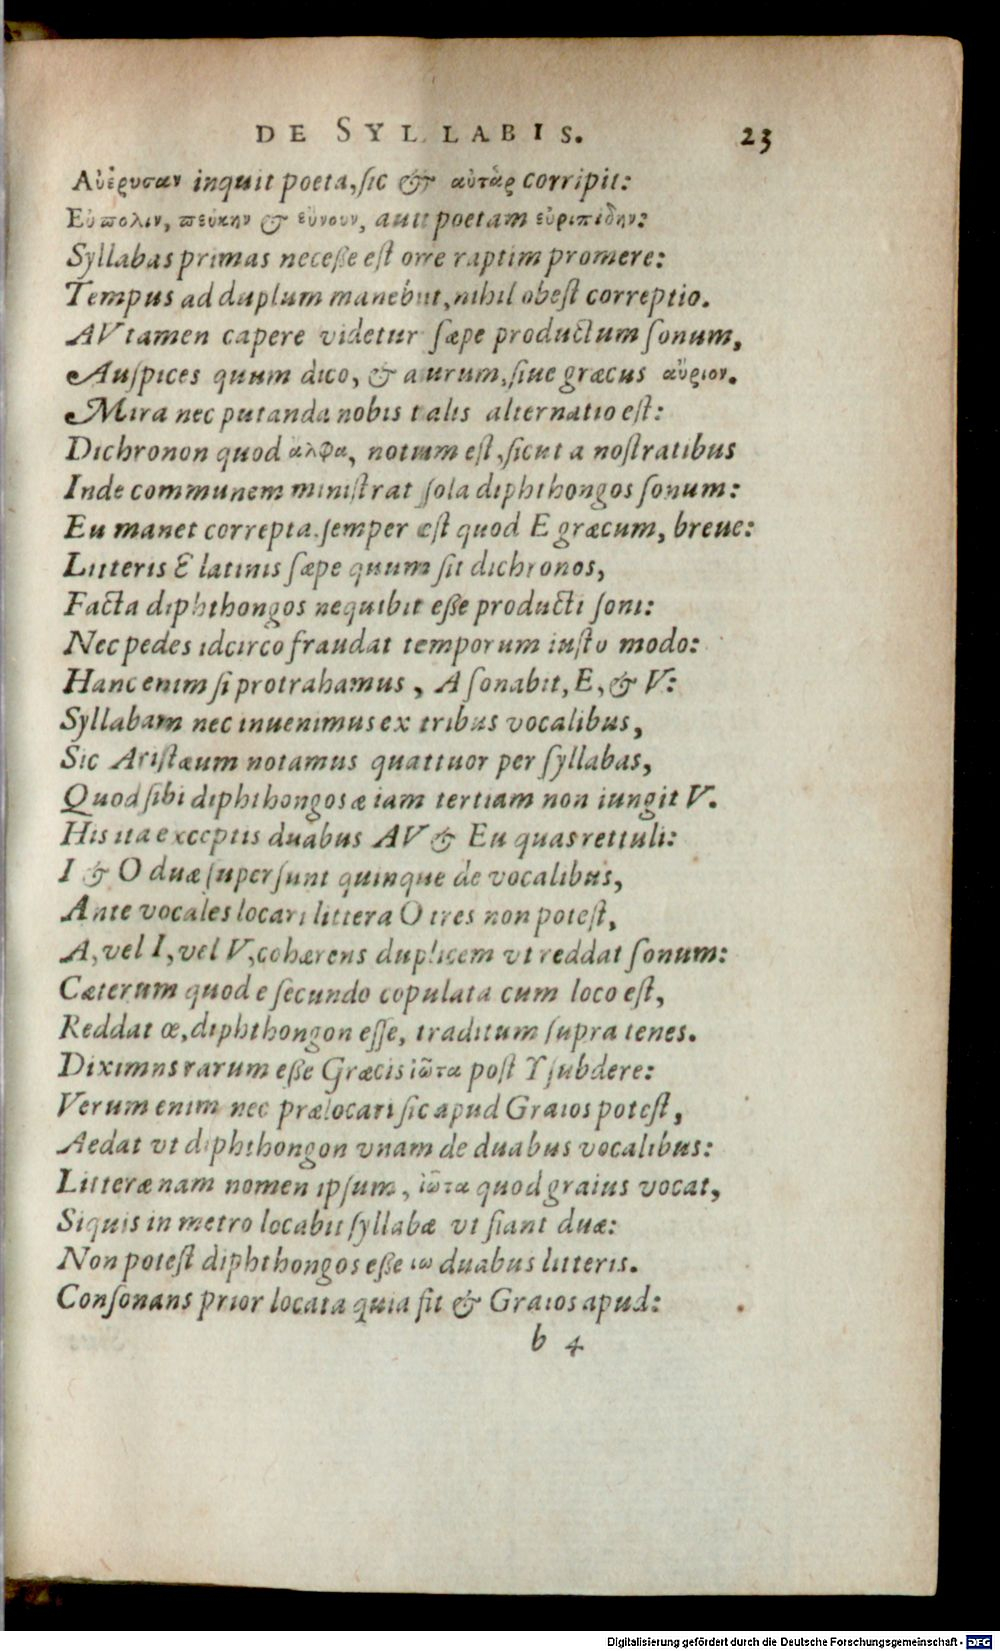 DE SYLLABIS. 23
Αὐέρυσαν inquit poeta, sic & αὐτὰρ corripit:
Εὔπολιν, πεύκην & εὔνουν, aut poetam εὐριπίδην:
Syllabas primas neceße est orre raptim promere:
Tempus ad duplum manebit, nihil obest correptio.
AV tamen capere videtur sæpe productum sonum,
Auspices quum dico, & aurum, siue græcus αὔριον.
Mira nec putanda nobis talis alternatio est:
Dichronon quod ἄλφα, notum est, sicut a nostratibus
Inde communem ministrat sola diphthongos sonum:
Eu manet correpta semper est quod E græcum, breue:
Litteris E latinis sæpe quum sit dichronos,
Facta diphthongos nequibit eße producti soni:
Nec pedes idcirco fraudat temporum iusto modo:
Hanc enim si protrahamus, A sonabit, E, & V:
Syllabam nec inuenimus ex tribus vocalibus,
Sic Aristæum notamus quattuor per syllabas,
Quod sibi diphthongos æ iam tertiam non iungit V.
His ita exceptis duabus AV & Eu quas rettuli:
I & O duæ supersunt quinque de vocalibus,
Ante vocales locari littera O tres non potest,
A, vel I, vel V, cohærens duplicem vt reddat sonum:
Cæterum quod e secundo copulata cum loco est,
Reddat œ, diphthongon esse, traditum supra tenes.
Diximns rarum eße Græcis ἰῶτα post Υ subdere:
Verum enim nec prælocari sic apud Graios potest,
Aedat vt diphthongon vnam de duabus vocalibus:
Litteræ nam nomen ipsum, ἰῶτα quod graius vocat,
Siquis in metro locabit syllabæ vt fiant duæ:
Non potest diphthongos eße ιω duabus litteris.
Consonans prior locata quia fit & Graios apud:
b 4
Digitalisierung gefördert durch die Deutsche Forschungsgemeinschaft - DFG